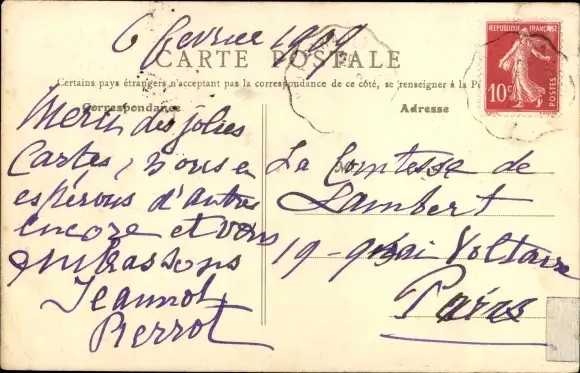 6 fevrier 1909
CARTE POSTALE
Certains pays étrangers n'acceptant pas la correspondance de ce côté, se renseigner à la
Correspondance
Adresse
Merci des jolies
Cartes, nous en
espérons d'autres
encore et vous
embrassons
Jeannot
Pierrot
La Comtesse de
Lambert
19 - quai Voltaire
Paris
REPUBLIQUE FRANÇAISE
10c
POSTES